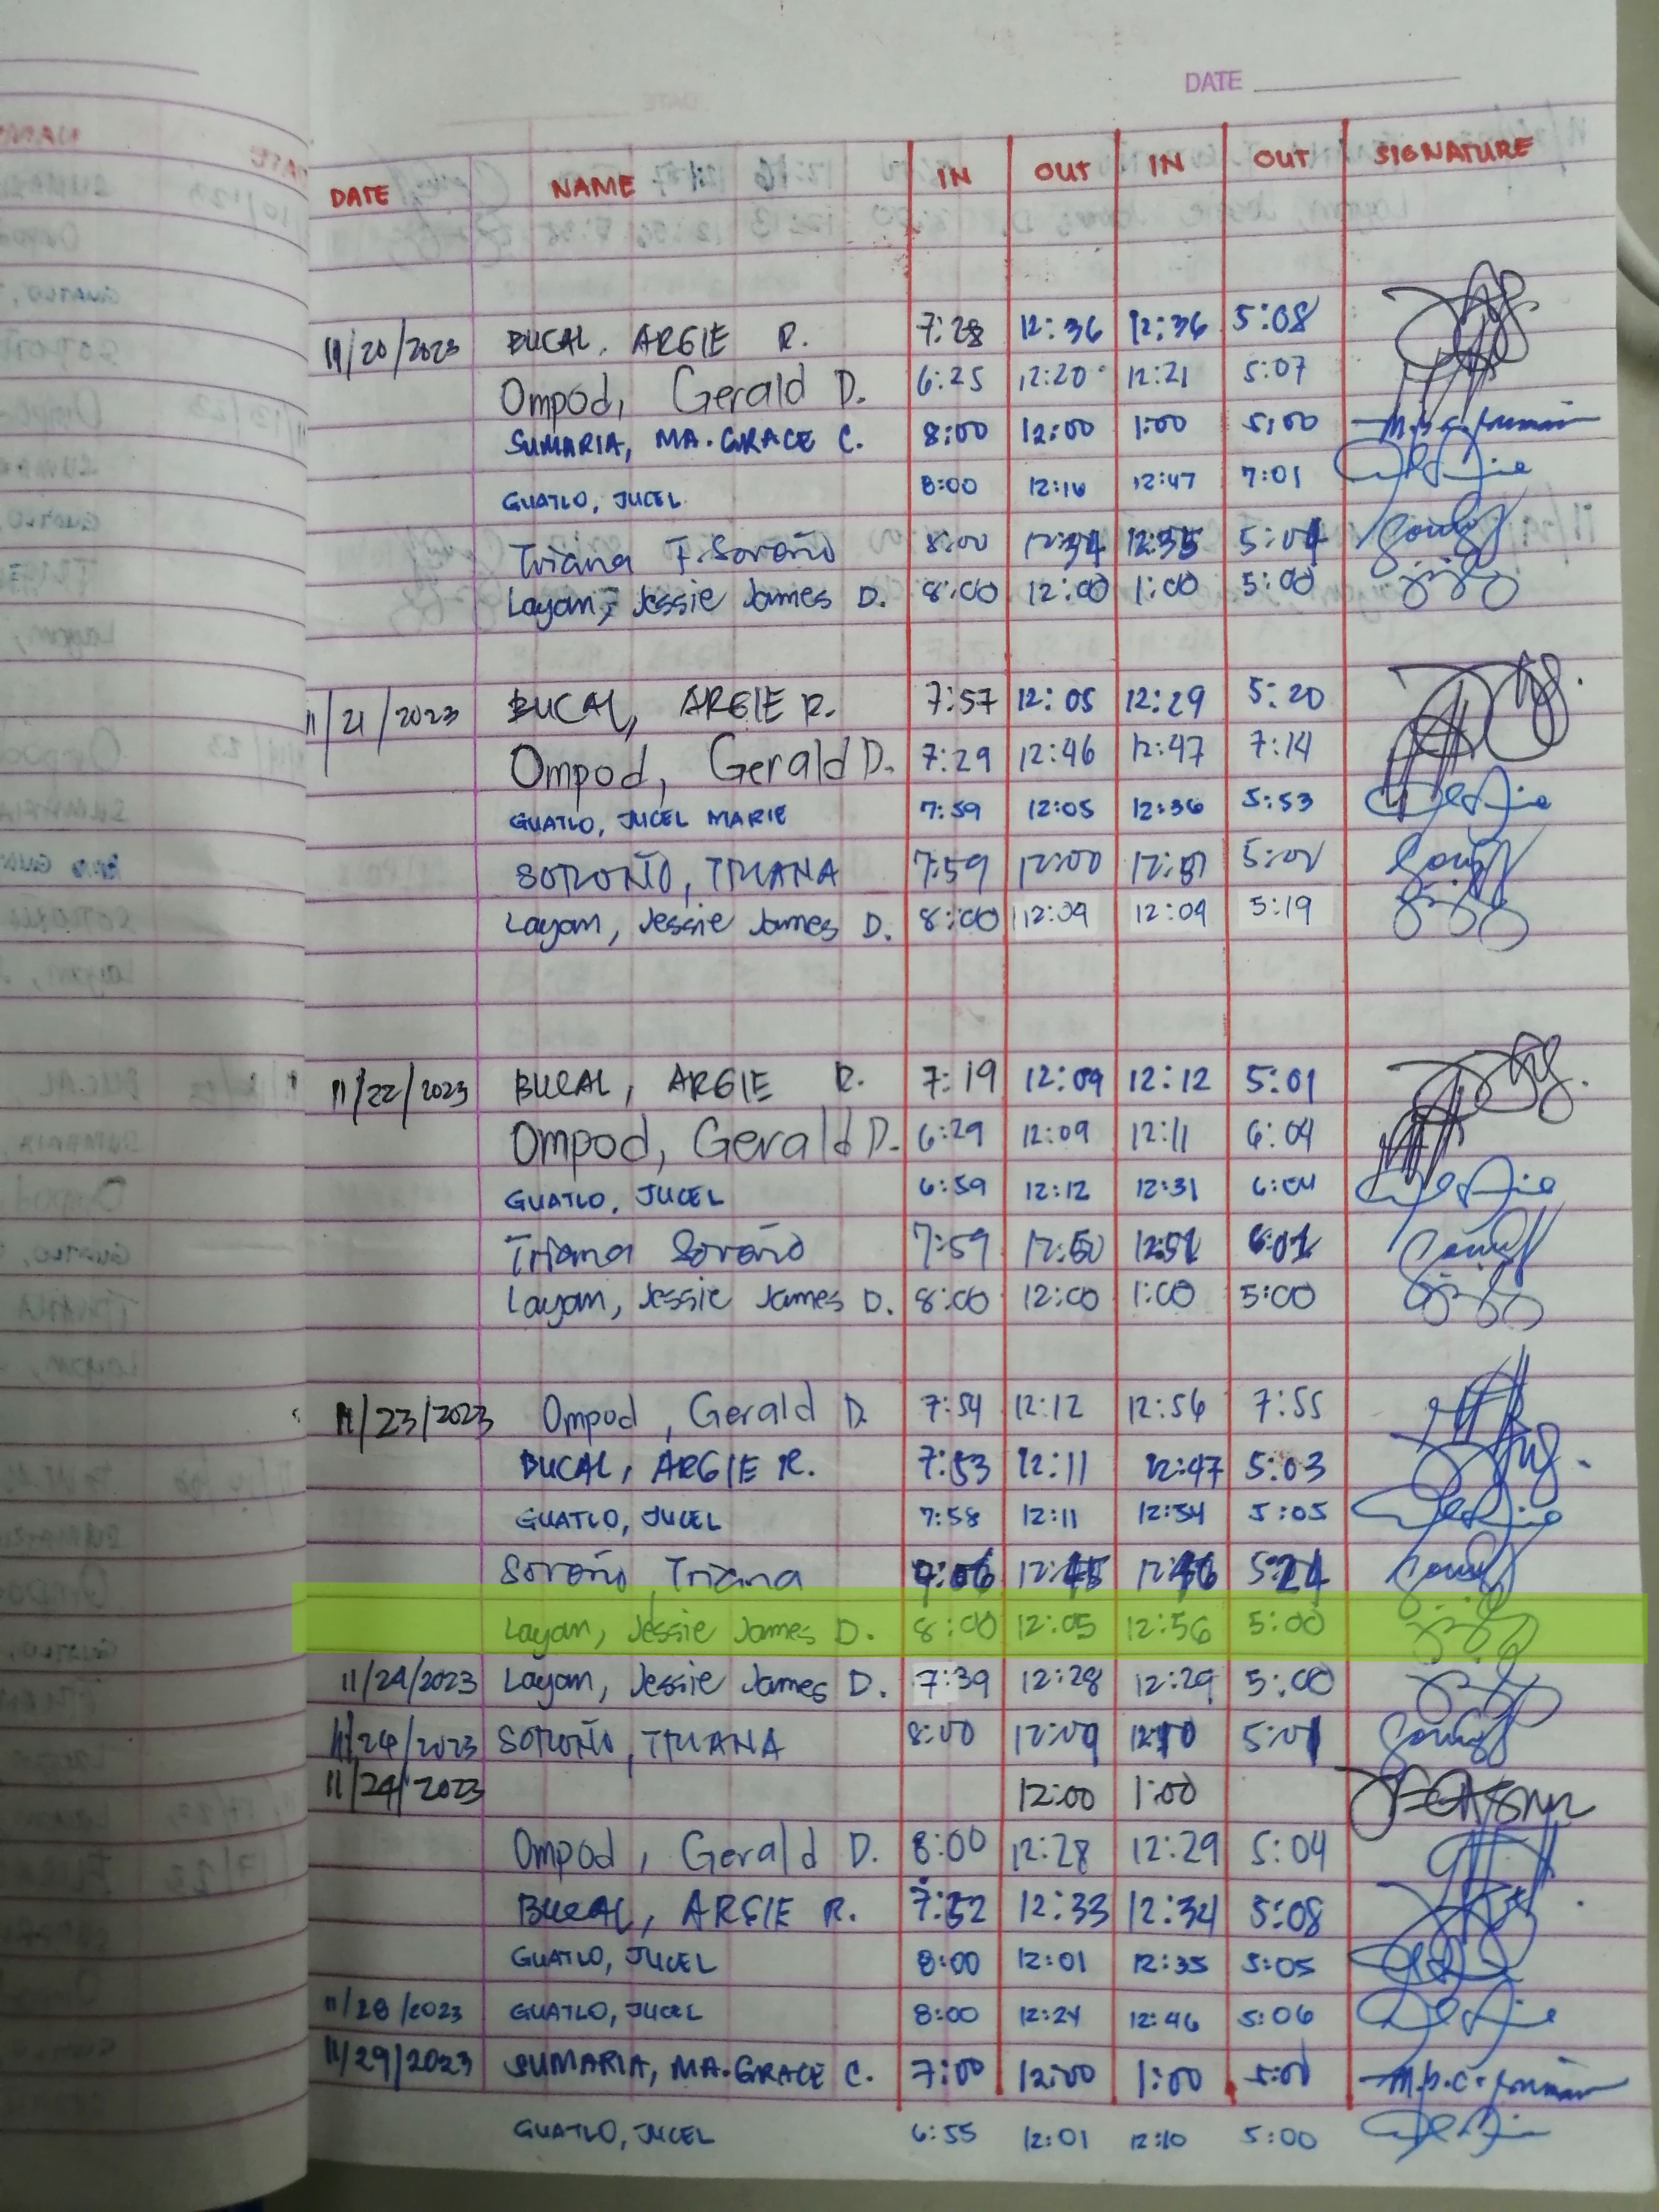 DATE
DATE NAME IN OUT IN OUT SIGNATURE
11/20/2023 BUCAL, ARGIE R. 7:28 12:36 12:36 5:08
Ompod, Gerald D. 6:25 12:20 12:21 5:07
SUMARIA, MA. GRACE C. 8:00 12:00 1:00 5:00
GUATLO, JUCEL 8:00 12:16 12:47 7:01
Triana F. Soroño 8:00 12:34 12:35 5:04
Layam, Jessie James D. 8:00 12:00 1:00 5:00
11/21/2023 BUCAL, ARGIE R. 7:57 12:05 12:29 5:20
Ompod, Gerald D. 7:29 12:46 12:47 7:14
GUATLO, JUCEL MARIE 7:59 12:05 12:36 5:53
SOROÑO, TRIANA 7:59 12:00 12:01
Layam, Jessie James D. 8:00 12:09 12:09 5:19
11/22/2023 BUCAL, ARGIE R. 7:19 12:09 12:12 5:01
Ompod, Gerald D. 6:29 12:09 12:11 6:04
GUATLO, JUCEL 6:59 12:12 12:31 6:04
Triana Soroño 7:59 12:50 12:51 6:01
Layam, Jessie James D. 8:00 12:00 1:00 5:00
11/23/2023 Ompod, Gerald D. 7:54 12:12 12:56 7:55
BUCAL, ARGIE R. 7:53 12:11 12:47 5:03
GUATLO, JUCEL 7:58 12:11 12:54 5:05
Soroño, Triana 12:45 12:46 5:24
Layam, Jessie James D. 8:00 12:05 12:56 5:00
11/24/2023 Layam, Jessie James D. 7:39 12:28 12:29 5:00
11/24/2023 SOROÑO, TRIANA 8:00 12:09 12:10 5:01
11/24/2023 12:00 1:00
Ompod, Gerald D. 8:00 12:28 12:29 5:04
BUCAL, ARGIE R. 7:52 12:33 12:34 5:08
GUATLO, JUCEL 8:00 12:01 12:35 5:05
11/28/2023 GUATLO, JUCEL 8:00 12:24 12:46 5:06
11/29/2023 SUMARIA, MA. GRACE C. 7:00 12:00 1:00 5:00
GUATLO, JUCEL 6:55 12:01 12:10 5:00